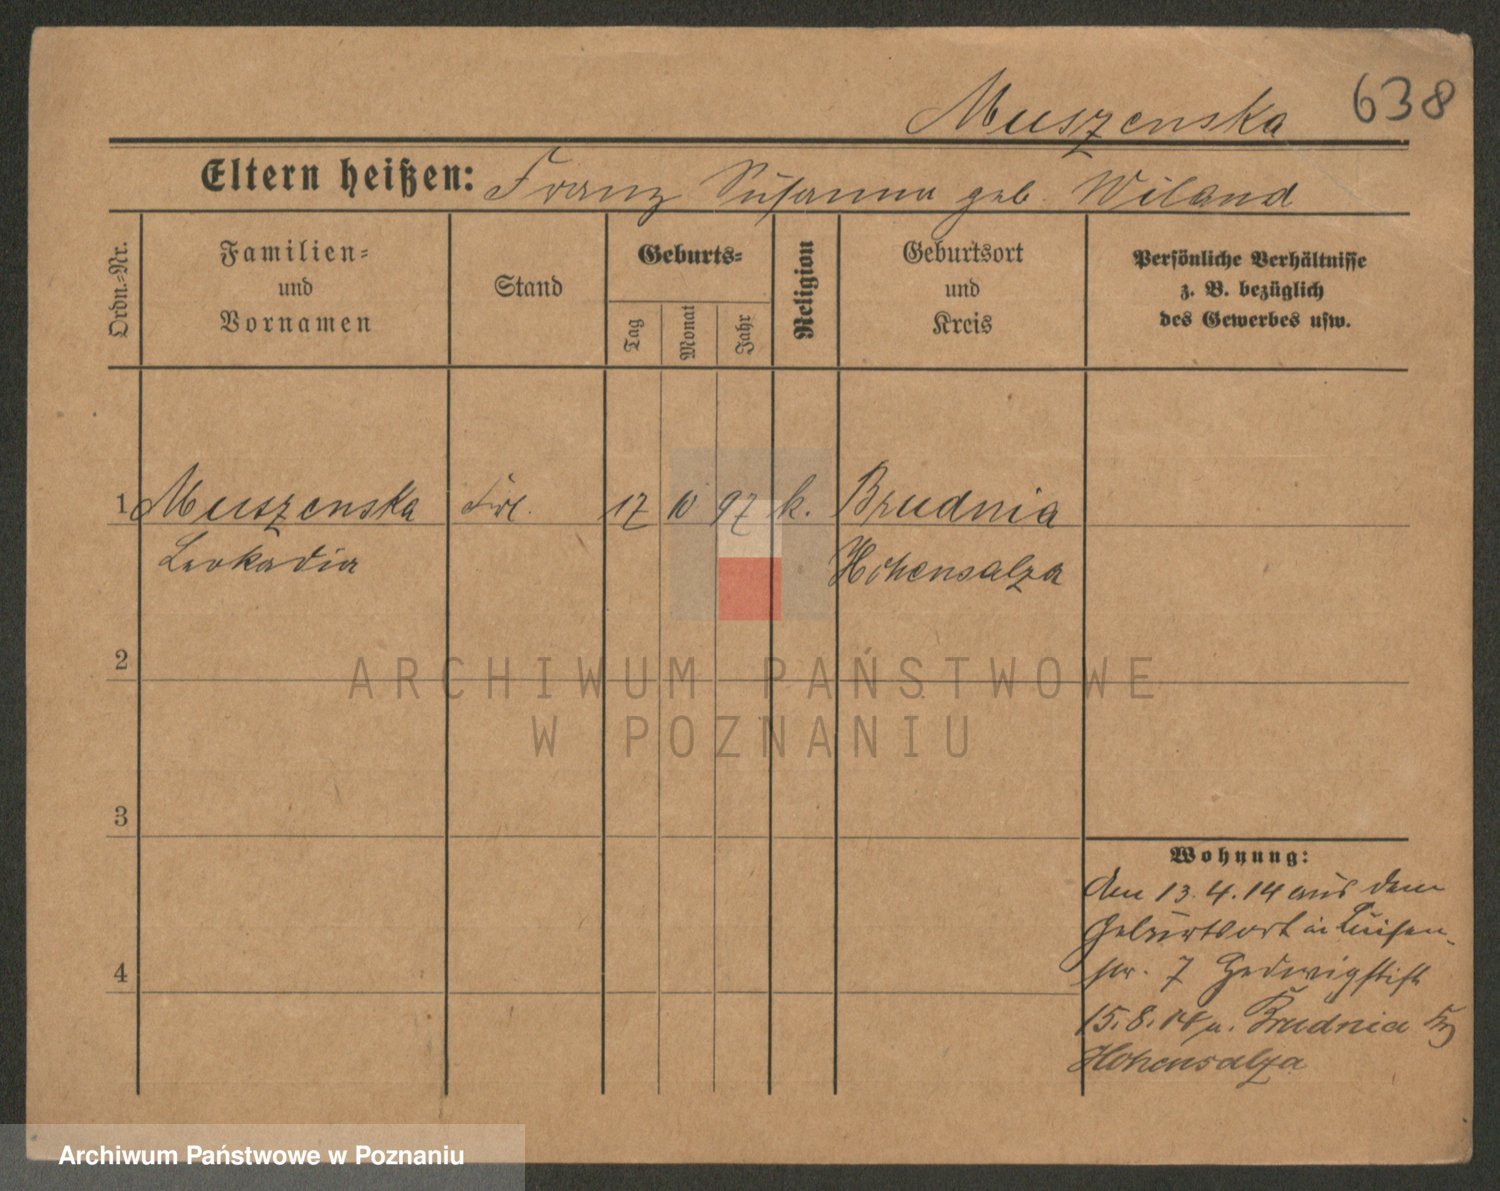 638
Muszenska
Eltern heißen: Franz Susanna geb. Wiland
Ordn.-Nr.
Familien-
und
Vornamen
Stand
Geburts-
Tag
Monat
Jahr
Religion
Geburtsort
und
Kreis
Persönliche Verhältnisse
z. B. bezüglich
des Gewerbes usw.
1 Muszenska Frl. 17 10 97 k. Brudnia
Leokadia Hohensalza
2
3
4
Wohnung:
Am 13.4.14 aus dem
Geburtsort in Luisen-
str. 7 Hedwigstift
15.8. Brudnia
Hohensalza
ARCHIWUM PAŃSTWOWE
W POZNANIU
Archiwum Państwowe w Poznaniu